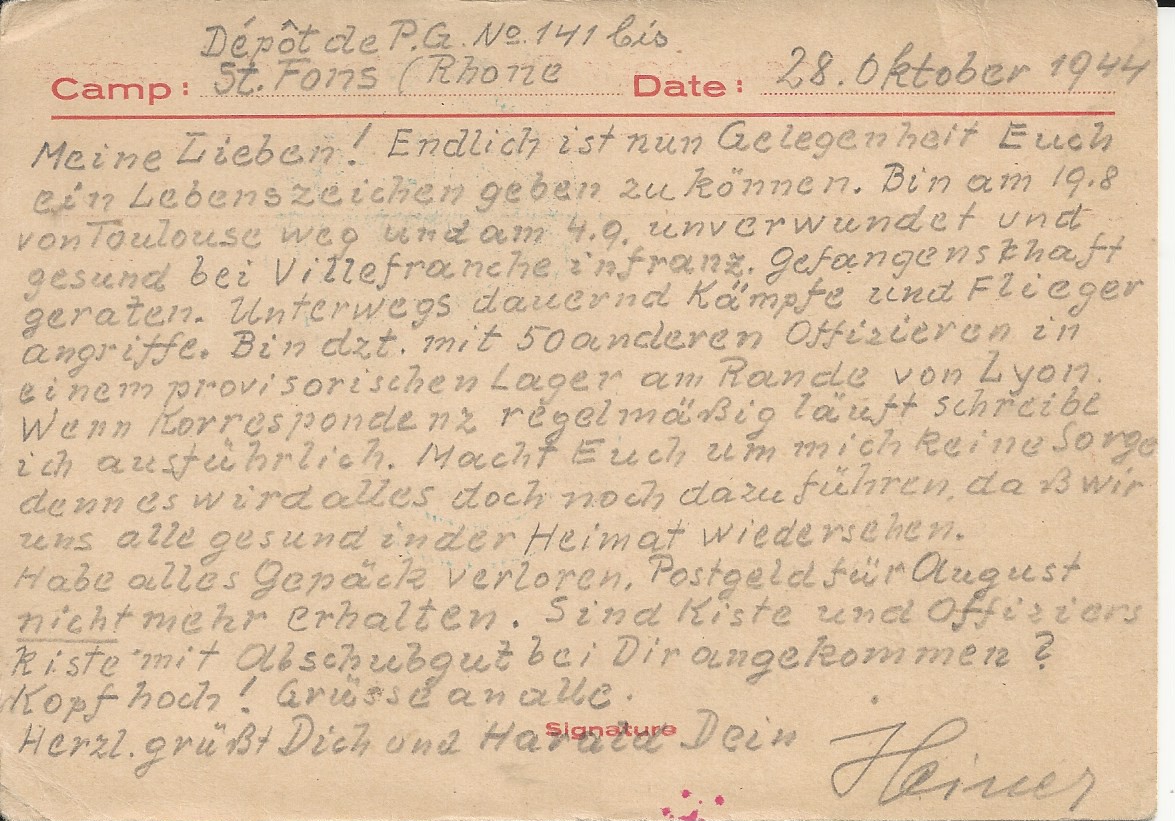 Dépôt de P.G. No. 141 bis.
Camp: St. Fons (Rhone Date: 28. Oktober 1944
Meine Lieben! Endlich ist nun Gelegenheit Euch
ein Lebenszeichen geben zu können. Bin am 19.8
von Toulouse weg und am 4.9. unverwundet und
gesund bei Villefranche in franz. Gefangenschaft
geraten. Unterwegs dauernd Kämpfe und Flieger
angriffe. Bin dzt. mit 50 anderen Offizieren in
einem provisorischen Lager am Rande von Lyon.
Wenn Korrespondenz regelmäßig läuft schreibe
ich ausführlich. Macht Euch um mich keine Sorge
denn es wird alles doch noch dazu führen, daß wir
uns alle gesund in der Heimat wiedersehen.
Habe alles Gepäck verloren, Postgeld für August
nicht mehr erhalten. Sind Kiste und Offiziers
kiste mit Abschubgut bei Dir angekommen?
Kopf hoch! Grüsse an alle.
Herzl. grüßt Dich und Harald Dein
Signature
Heiner